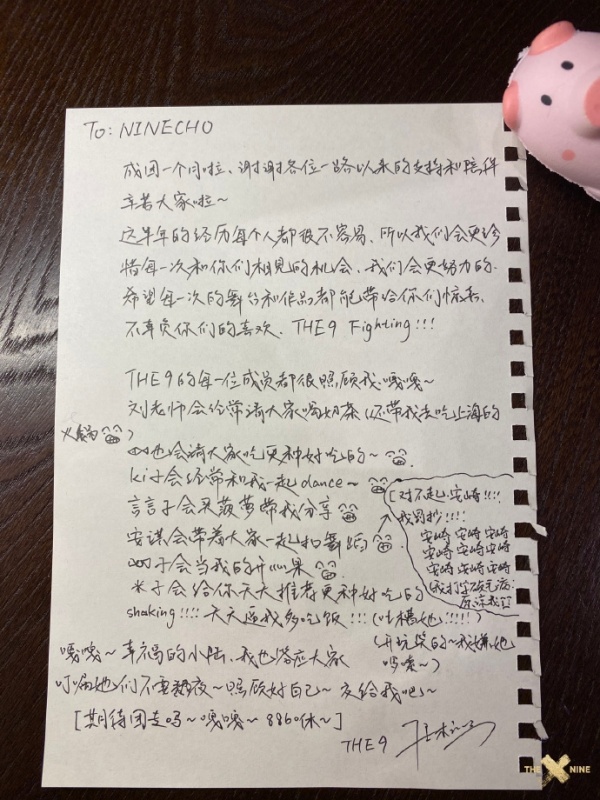 To: NINECHO
成团一个月啦、谢谢各位一路以来的支持和陪伴
辛苦大家啦~
这半年的经历每个人都很不容易、所以我们会更珍
惜每一次和你们相见的机会、我们会更努力的.
希望每一次的舞台和作品都能带给你们惊喜、
不辜负你们的喜欢、THE9 Fighting!!!
THE9的每一位成员都很照顾我、嘎嘎~
刘老师会经常请大家喝奶茶(还带我去吃上海的
火锅)
也会请大家吃更种好吃的~
ki子会经常和我一起dance~
言言子会买菠萝带我分享
安谋会带着大家一起扣舞蹈
子会当我的开心果
米子会给你天天推荐更种好吃的
shaking!!!! 天天逼我多吃饭!!! (吐槽她!!!!!)
(开玩笑的~我嫌她
[对不起、安崎!!!!
我罚抄!!!!
安崎 安崎 安崎
安崎 安崎 安崎
安崎 安崎 安崎
原谅我]
嘎嘎~ 幸福的小陆、我也答应大家
叮嘱她们不要熬夜~照顾好自己~交给我吧~
[期待团走吗~嘎嘎~ 886休~]
THE9
THE NINE